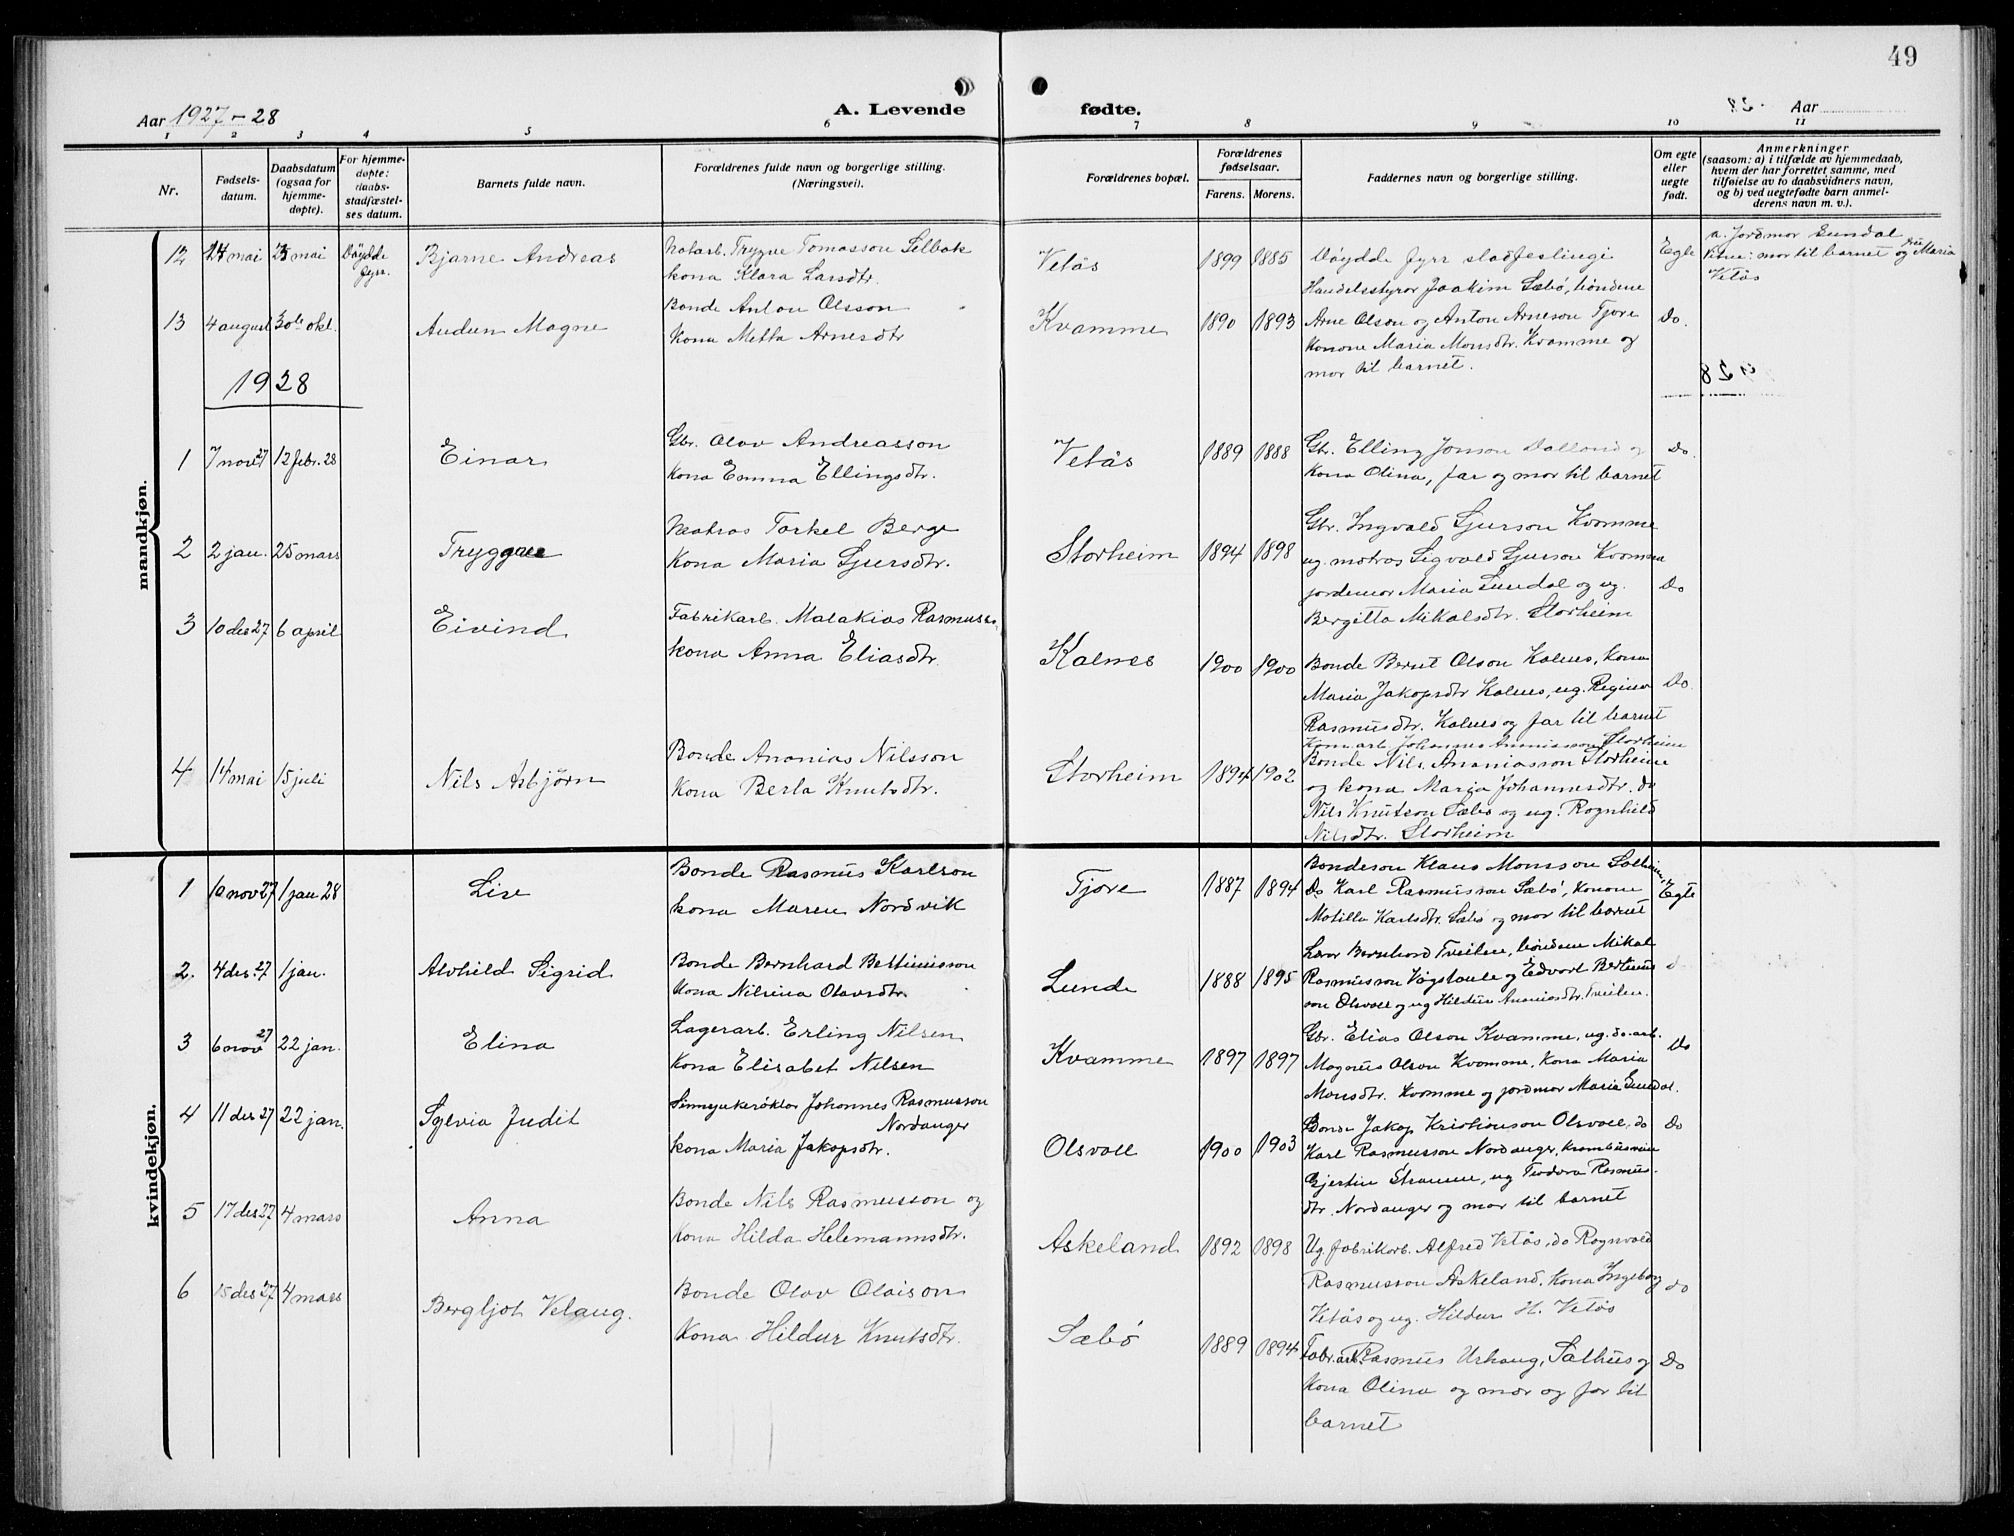 49
Aar 1927-28
A. Levende
fødte.
Aar
1 2 3 4 5 6 7 8 9 10 11
Nr.
Fødselsdatum.
Daabsdatum (ogsaa for hjemmedøpte).
For hjemmedøpte: daabsstadfæstelses datum.
Barnets fulde navn.
Forældrenes fulde navn og borgerlige stilling. (Næringsvei).
Forældrenes bopæl.
Forældrenes fødselsaar.
Farens. Morens.
Faddernes navn og borgerlige stilling.
Om egte eller uegte født.
Anmerkninger
(saasom: a) i tilfælde av hjemmedaab, hvem der har forrettet samme, med tilføielse av to daabsvidners navn, og b) ved uegtefødte barn anmelderens navn m. v.).
mandkjøn.
12 24 mai 25 mai Døydde fyrr. Bjarne Andreas
Notarb. Trygve Tomasson Selbak
kona Klara Larsdtr.
Vetås 1899 1885 Døydde fyrr stadfestingi Egte
a. Jordmor Sundal
Vitne: mor til barnet og fru Maria
Vetås
13 4 august 30te okt. Audun Magne
Bonde Anton Olsson
Kona Metta Arnesdtr
Kvamme 1890 1893
Handelsstyrar Joakim Sæbø, bøndene
Arne Olson og Anton Arneson Tjore Do.
Konone Maria Monsdtr. Kvamme og
mor til barnet.
1928
1 7 nov 27 12 febr. 28 Einar
Gbr. Olav Andreasson
Kona Emma Ellingsdtr.
Vetås 1889 1888
Gbr. Elling Jonson Dalland og Do.
Kona Olina, far og mor til barnet
2 2 jan. 25 mars Tryggve
Matros Torkel Berge
Kona Maria Sjursdtr.
Storheim 1894 1898
Gbr. Ingvald Sjurson Kvamme
ug. matros Sigvald Sjurson Kvamme
jordmor Maria Sundal og ug. Do
Bergitta Mikalsdtr. Storheim
3 10 des 27 6 april Eivind
Fabrikarb. Malakias Rasmusson
kona Anna Eliasdtr.
Kalnes 1900 1900
Bonde Bernt Olson Kalnes, kona
Maria Jakopsdtr Kalnes, ug. Regina Do.
Rasmusdtr. Kalnes og far til barnet
4 14 mai 15 juli Nils Asbjørn
Bonde Ananias Nilsson
Kona Berta Knutsdtr.
Storheim 1894 1902
Johannes Ananiasson Storheim
Bonde Nils Ananiasson Storheim
og kona Marja Johannesdtr. do
Nils Knutson Sæbø og ug. Ragnhild
Nilsdtr. Storheim
kvindekjøn.
1 10 nov 27 1 jan 28 Lise
Bonde Rasmus Karlson
kona Maren Nordvik
Tjore 1887 1894
Bondeson Klaus Monsson Solheim,
Do Karl Rasmusson Sæbø, konone Egte
Matilla Karlsdtr. Sæbø og mor til barnet
2. 4 des 27 1 jan. Alvhild Sigrid
Bonde Bernhard Bettinisson
Kona Nilsina Olavsdtr.
Lunde 1888 1895
Lærar Bernhard Tveiten, bøndene Mikal
Rasmusson Vågstaule og Edvart Bertinus
son Olsvoll og ug Hildur Ananiasdtr. Tveiten.
3 6 nov 27 22 jan. Elina
Lagerarb. Erling Nilsen
Kona Elisabet Nilsen
Kvamme 1897 1897
Gbr. Elias Olson Kvamme, ug. do. arb.
Magnus Olson Kvamme, Kona Maria Do
Monsdtr. Kvamme og jordmor Maria Sundal.
4 11 des 27 22 jan. Sylvia Judit
Johannes Rasmusson
Nordanger
kona Maria Jakopsdtr.
Olsvoll 1900 1903
Bonde Jakop Kristianson Olsvoll, do Do
Karl Rasmusson Nordanger,
Gjertin Straume, ug Teodora Rasmus-
dtr. Nordanger og mor til barnet
5 17 des 27 4 mars Anna
Bonde Nils Rasmusson og
Kona Hilda Helemannsdtr.
Askeland 1892 1898
Ug. fabrikarb. Alfred Vetås, do Ragnvald
Rasmusson Askeland, Kona Ingeborg Do
Vetås og ug. Hildur H. Vetås
6 15 des 27 4 mars Bergljot Velaug.
Bonde Olav Olaison
Kona Hildur Knutsdtr.
Sæbø 1889 1894
Fabr. arb. Rasmus Urhaug, Salhus og Do
Kona Olina og mor og far til
barnet